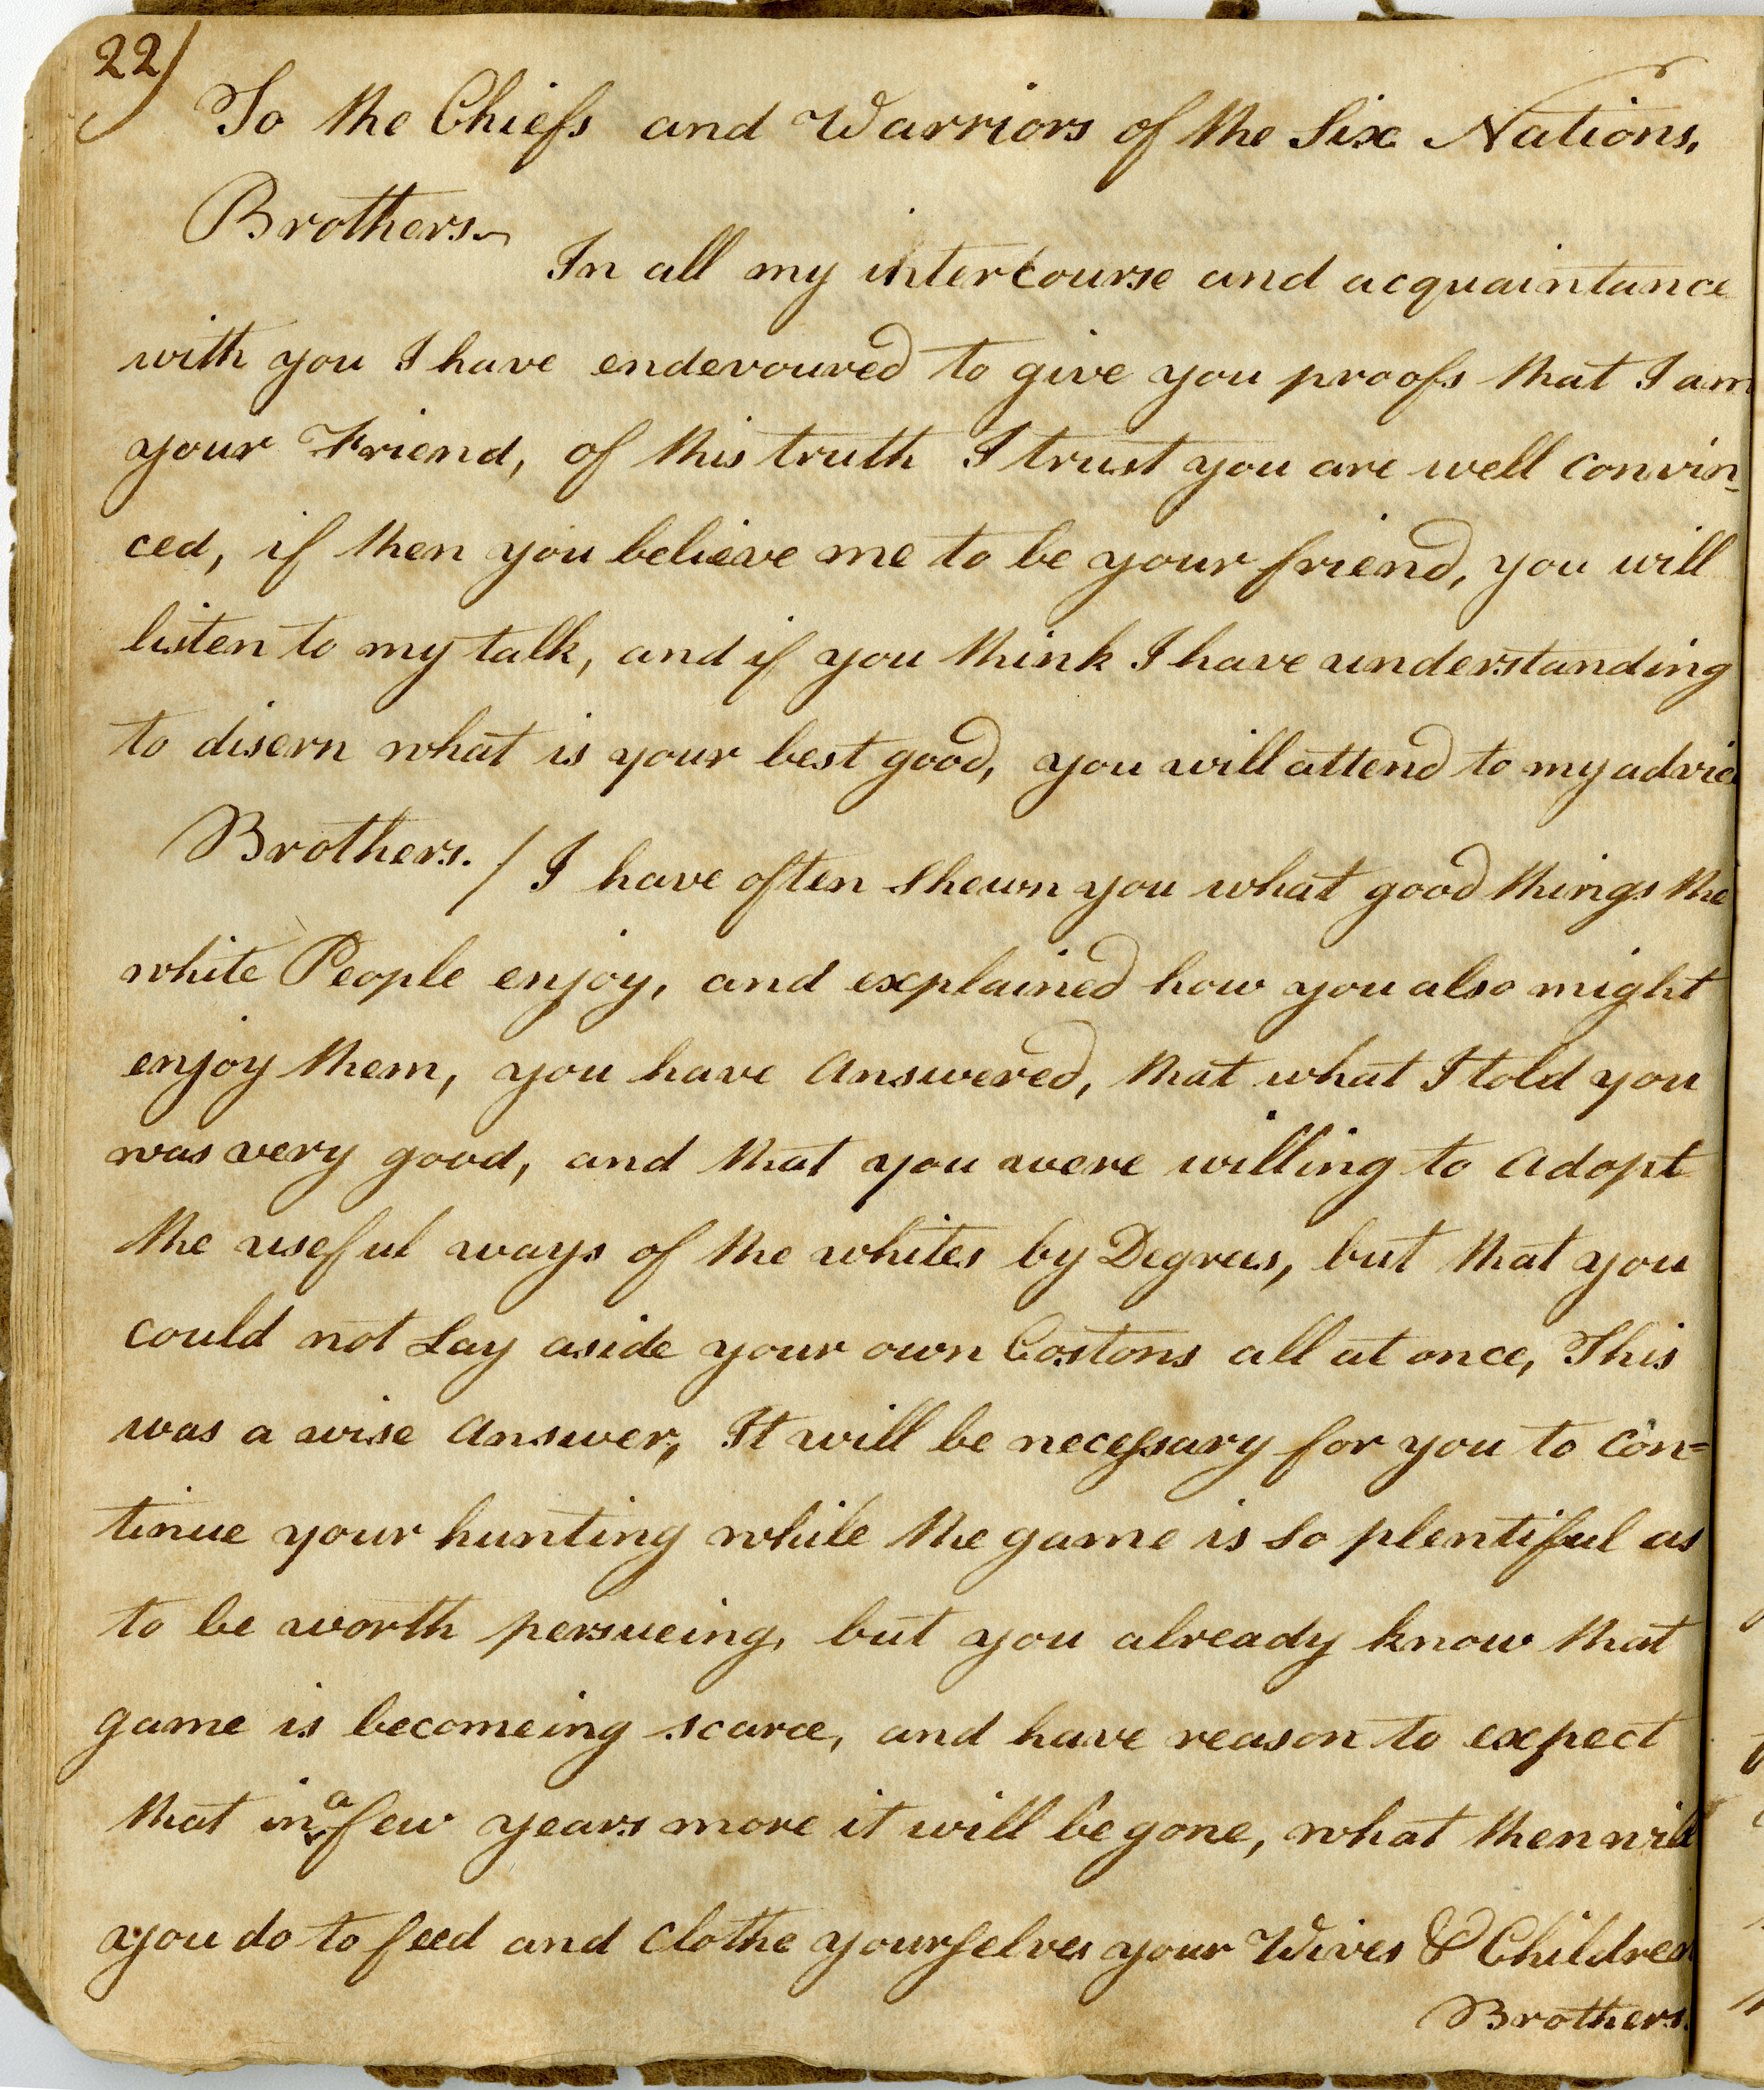 22)
To the Chiefs and Warriors of the Six Nations,
Brothers.
In all my intercourse and acquaintance
with you I have endevoured to give you proofs that I am
your Friend, of this truth I trust you are well convin-
ced, if then you believe me to be your friend, you will
listen to my talk, and if you think I have understanding
to disern what is your best good, you will attend to my advice
Brothers. / I have often shewn you what good things the
white People enjoy, and explained how you also might
enjoy them, you have answered, that what I told you
was very good, and that you were willing to adopt
the useful ways of the whites by Degrees, but that you
could not Lay aside your own Costons all at once, This
was a wise answer, It will be necessary for you to con=
tinue your hunting while the game is so plentiful as
to be worth persueing, but you already know that
game is becomeing scarce, and have reason to expect
that in a few years more it will be gone, what then will
you do to feed and clothe yourselves your Wives & Children
Brothers.